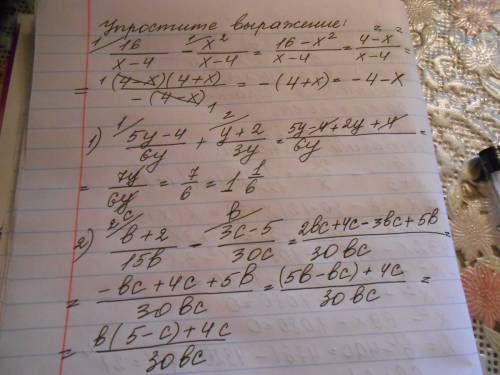 Упростите выражение:
16/(x-4) - x²/(x-4) = (16-x²)/(x-4) = (4²-x²)/(x-4) =
= (4-x)(4+x)/-(4-x) = -(4+x) = -4-x
1) (5y-4)/6y + (y+2)/3y = (5y-4+2y+4)/6y =
= 7y/6y = 7/6 = 1 1/6
2) (в+2)/15в - (3c-5)/30c = (2вc+4c-3вc+5в)/30вc =
= (-вc+4c+5в)/30вc = ((5в-вc)+4c)/30вc =
= (в(5-c)+4c)/30вc